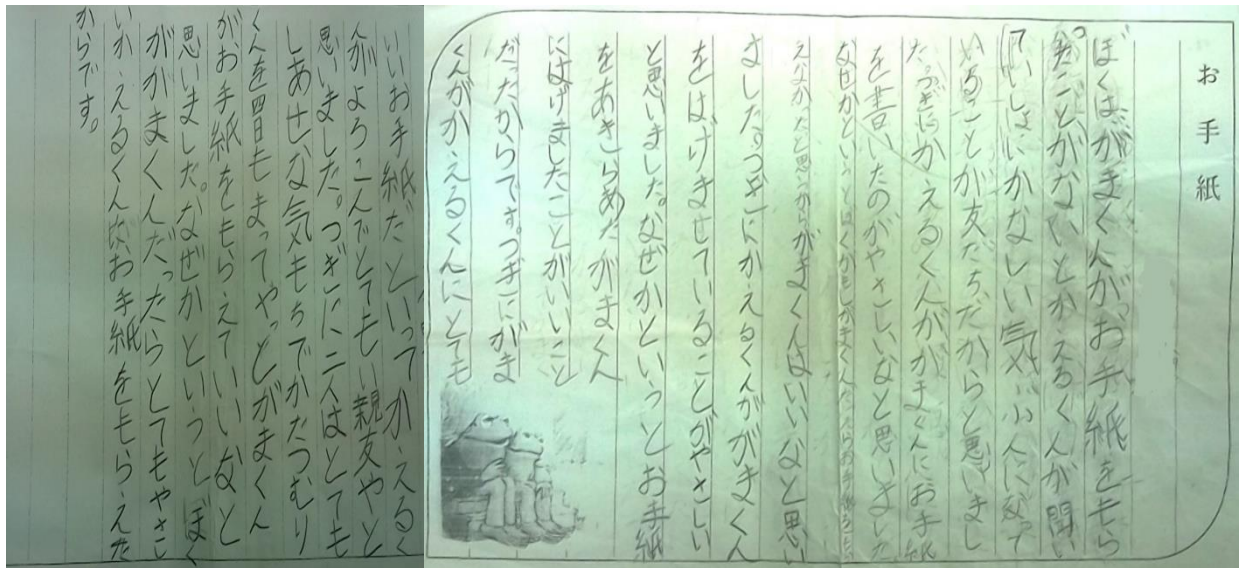 お手紙
ぼくは、がまくんがお手紙をもら
ったことがないとかえるくんが聞い
ていっしょにかなしい気ぶんになって
いることが友だちだからと思いまし
た。つぎにかえるくんががまくんにお手紙
を書いたのがやさしいなと思いました
なぜかというとぼくがもしがまくんだったらお手紙を
えなかったと思うからがまくんはいいなと思い
ました。つぎにかえるくんががまくん
をはげきましていることがやさしい
と思いました。なぜかというとお手紙
をあきらめたがまくん
にはげましたことがいいこと
だったからです。つぎにがま
くんがかえるくんにとても
いいお手紙だといってかえるく
んがよろこんでとてもいい親友やと
思いました。つぎに二人はとても
しあせな気もちでかたつむり
くんを四日もまってやっとがまくん
がお手紙をもらえていいなと
思いました。なぜかというとぼく
ががまくんだったらとてもやさし
いかえるくんにお手紙をもらえた
からです。